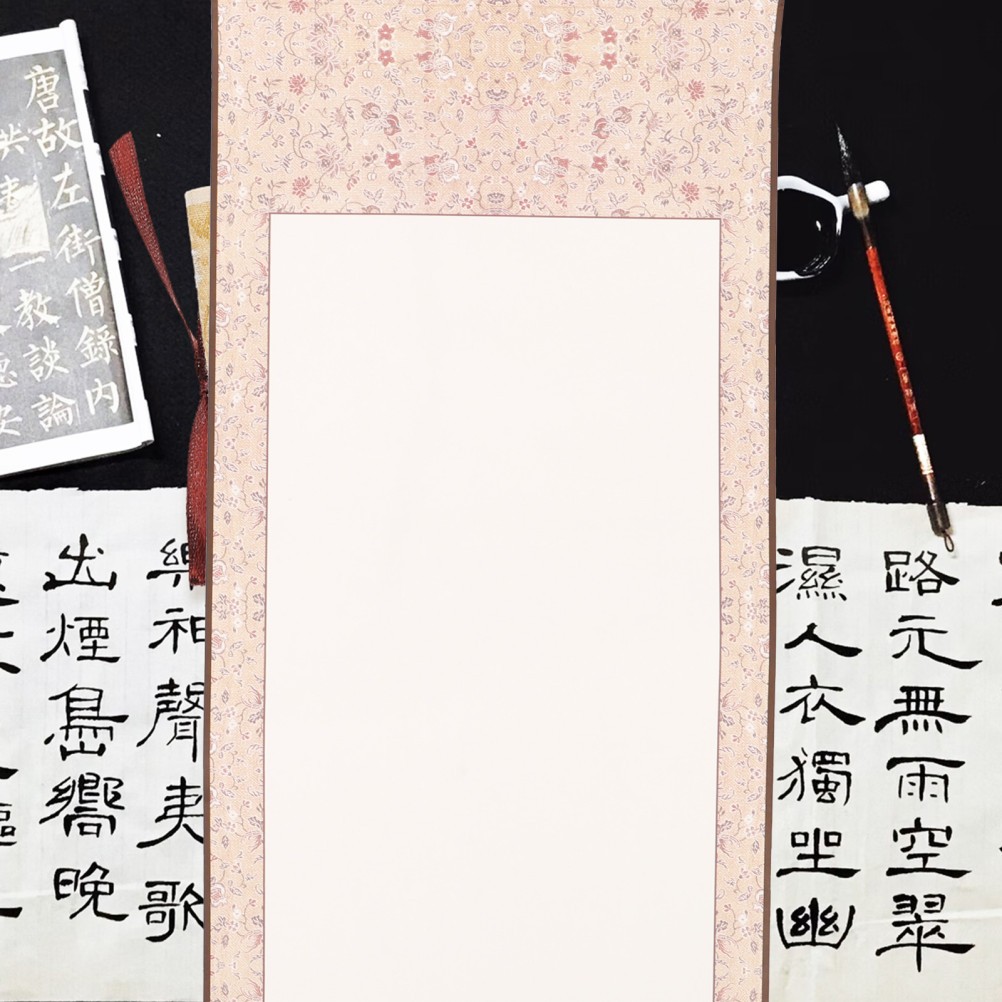 路元無雨空翠
濕人衣獨坐幽
和聲夷歌
出煙島嚮晚
唐故左街僧錄內
教談論